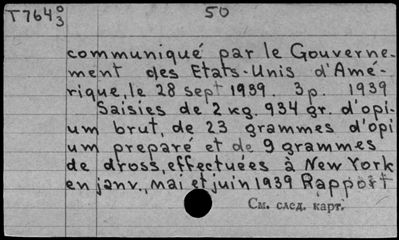 T764 0/3 50
communiqué par le Gouverne-
ment des Etats-Unis d'Amé-
rique, le 28 sept 1939. 3p. 1939
Saisies de 2 kg. 934 gr. d'opi-
um brut, de 23 grammes d'opi
um preparé et de 9 grammes
de dross, effectuées à New York
en janv., mai et juin 1939 Rapport
См. след. карт.